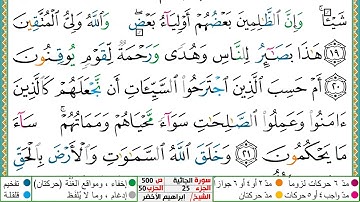 شَيْـًٔاۚ وَإِنَّ ٱلظَّٰلِمِينَ بَعْضُهُمْ أَوْلِيَآءُ بَعْضٍۖ وَٱللَّهُ وَلِىُّ ٱلْمُتَّقِينَ
١٩ هَٰذَا بَصَٰٓئِرُ لِلنَّاسِ وَهُدًى وَرَحْمَةٌ لِّقَوْمٍ يُوقِنُونَ
٢٠ أَمْ حَسِبَ ٱلَّذِينَ ٱجْتَرَحُوا۟ ٱلسَّيِّـَٔاتِ أَن نَّجْعَلَهُمْ كَٱلَّذِينَ
ءَامَنُوا۟ وَعَمِلُوا۟ ٱلصَّٰلِحَٰتِ سَوَآءً مَّحْيَاهُمْ وَمَمَاتُهُمْۚ سَآءَ
مَا يَحْكُمُونَ ٢١ وَخَلَقَ ٱللَّهُ ٱلسَّمَٰوَٰتِ وَٱلْأَرْضَ بِٱلْحَقِّ
مدّ ٦ حركات لزوماً مدّ ٢ أو ٤ أو ٦ جوازاً
سورة الجاثية ص 500
الجزء 25 الحزب 50
الشيخ/ ابراهيم الأخضر
إخفاء، ومواقع الغُنَّة (حركتان) تفخيم
إدغام، وما لا يُلفَظ قلقلة